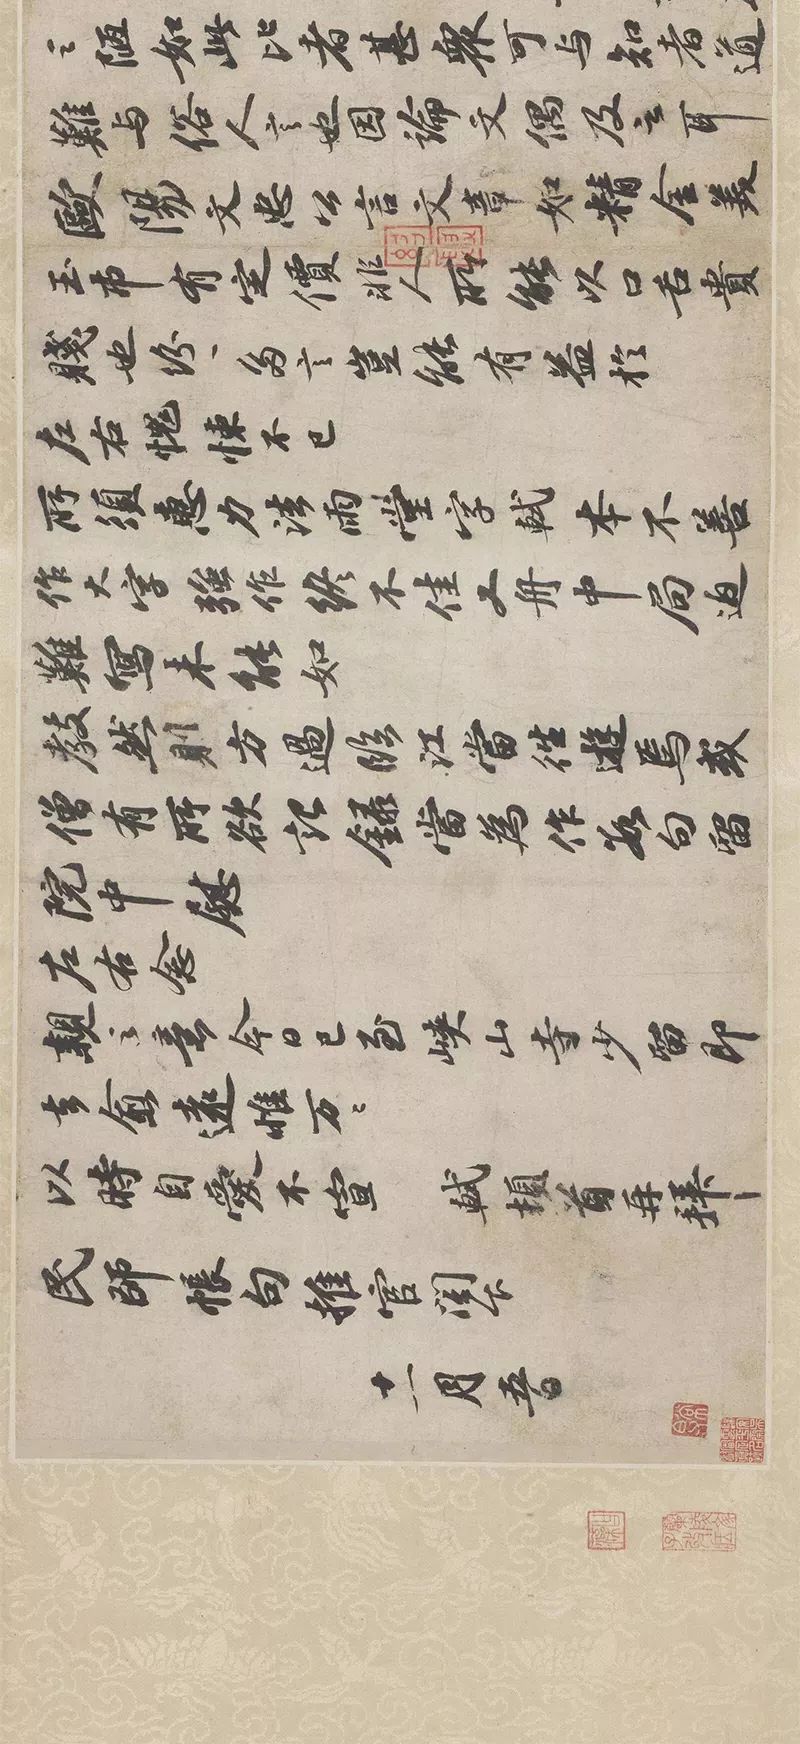 之陋如此比者甚衆可与知者道
難与俗人言也因論文偶及之耳
歐陽文忠公言文章如精金美
玉市有定價非人所能以口舌貴
賤也紛、多言豈能有益於
左右愧悚不已
所須惠力法雨堂字軾本不善
作大字強作終不佳又舟中局迫
難寫未能如
教然則方過臨江當往遊焉或
僧有所欲記錄當為作數句留
院中慰
左右念
親之意今日已至峽山寺少留即
去愈遠惟万〻
以時自愛不宣 軾頓首再拜
民師帳句推官閣下
十一月五日